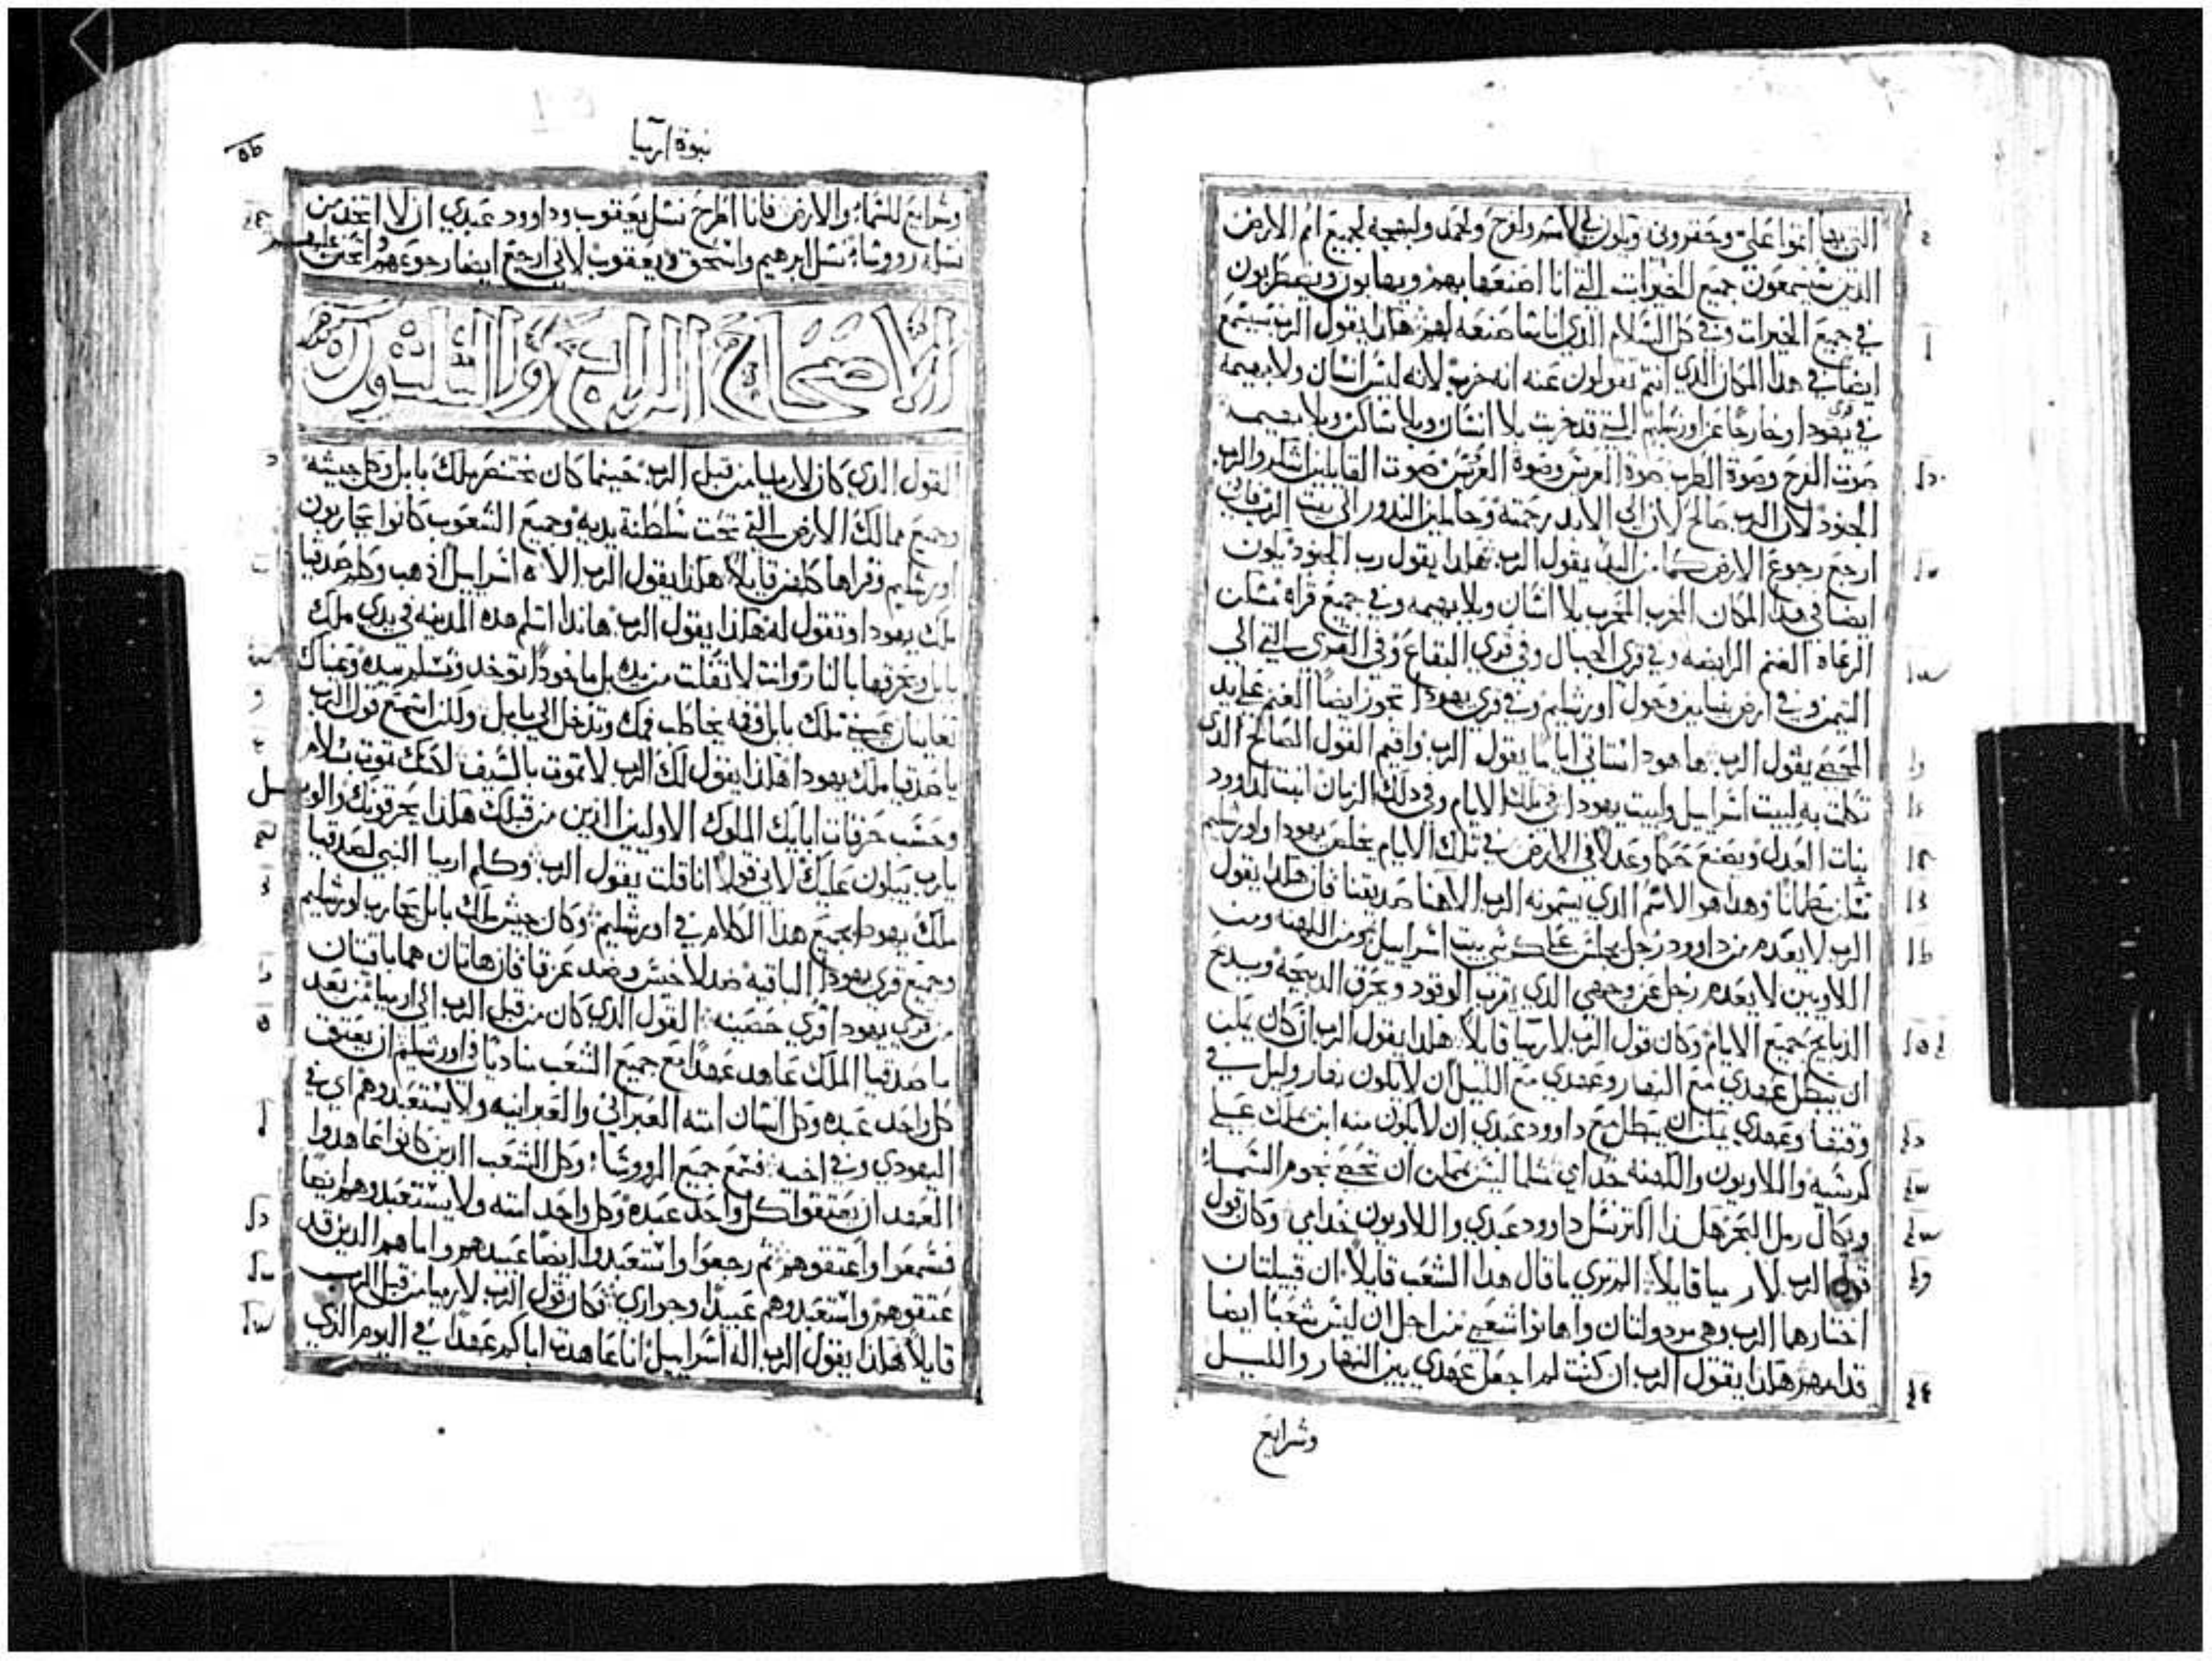 التي بها اثموا علي وحقروني ويكون لي لاسم ولفرح ولحمد ولبهجه لجميع امم الارض
الذين يسمعون جميع الخيرات التي انا اصنعها بهم ويهابون ويضطربون
في جميع الخيرات وفي كل السلام الذي انا ساصنعه لهم هكذا يقول الرب سيسمع
ايضا في هذا المكان الذي انتم تقولون عنه انه خرب لانه ليس انسان ولا بهيمه
في قري يهودا وخارجا عن اورشليم التي قد خربت بلا انسان وبلا ساكن وبلا بهيمه
صوت الفرح وصوة الطرب صوة العريس وصوة العروس صوت القايلين اشكروا الرب
الجنود لان الرب صالح لان الى الابد رحمته وحاملين النذور الى بيت الرب فاني
ارجع رجوع الارض كما من البدء يقول الرب هكذا يقول رب الجنود يكون
ايضا في هذا المكان الخرب المخرب بلا انسان وبلا بهيمه وفي جميع قراه مسكن
الرعاة الغنم الرابضه وفي قري الجبال وفي قري البقاع وفي القري التي الى
التيمن وفي ارض بنيامين وحول اورشليم وفي قري يهودا تجوز ايضا الغنم على يد
المحصي يقول الرب ها هوذا ستاتي ايام يقول الرب واقيم القول الصالح الذي
تكلمت به لبيت اسراييل ولبيت يهودا في تلك الايام وفي ذلك الزمان انبت لداوود
بنات العدل ويصنع حكما وعدلا في الارض في تلك الايام يخلص يهودا واورشليم
تسكن مطمانا وهذا هو الاسم الذي يسمونه الرب الاهنا صديقنا فان هكذا يقول
الرب لا يعدم من داوود رجل يجلس على كرسي بيت اسراييل ومن الكهنه ومن
اللاويين لا يعدم رجل عن وجهي الذي يقرب الوقود ويحرق الذبيحة ويذبح
الذبايح جميع الايام وكان قول الرب لارميا قايلا هكذا يقول الرب ان كان يمكن
ان يبطل عهدي مع النهار وعهدي مع الليل ان لا يكون نهار وليل في
وقتها وعهدي يمكن ان يبطل مع داوود عبدي ان لا يكون منه ابن يملك على
كرسيه واللاويون والكهنه خدامي مثلما ليس يمكن ان تحصي نجوم السماء
ويكال رمل البحر هكذا اكثر نسل داوود عبدي واللاويون خدامي وكان قول
قول الرب لارميا قايلا الم تري ما قال هذا الشعب قايلا ان قبيلتان
اختارهما الرب وهي مرذولتان واهانوا شعبي من اجل ان ليس شعبا ايضا
قدامهم هكذا يقول الرب ان كنت لم اجعل عهدي بين النهار والليل
وشرايع
نبوة ارميا
وشرايع للسماء والارض فانا اطرح نسل يعقوب وداوود عبدي ان لا اتخذ من
نسله رووساء نسل ابرهيم واسحق ويعقوب لاني ارجع ايضا رجوعهم واتحنن عليهم
الاصحاح الرابع والثلثون
القول الذي كان لارميا من قبل الرب حينما كان بختنصر ملك بابل وكل جيشه
وجميع ممالك الارض التي تحت سلطنة يديه وجميع الشعوب كانوا يحاربون
اورشليم وقراها كلهن قايلا هكذا يقول الرب الاه اسراييل اذهب وكلم صدقيا
ملك يهودا وتقول له هكذا يقول الرب هانذا اسلم هذه المدينه في يدي ملك
بابل ويحرقها بالنار وانت لا تفلت من يده بل ماخوذا توخذ وتسلم بيده وعيناك
تعاينان عيني ملك بابل وفمه يخاطب فمك وتدخل الى بابل ولكن استمع قول الرب
يا صدقيا ملك يهودا هكذا يقول لك الرب لا تموت بالسيف لكنك تموت بسلام
وحسب حرقات ابايك الملوك الاولين الذين من قبلك هكذا يحرقونك والويل
يا رب يبكون عليك لاني قولا انا قلت يقول الرب وكلم ارميا النبي لصدقيا
ملك يهودا بجميع هذا الكلام في اورشليم وكان جيش ملك بابل يحارب اورشليم
وجميع قري يهودا الباقيه ضد لاخيش وضد عزقا فان هاتان هما باقيتان
من قري يهودا قري حصينه القول الذي كان من قبل الرب الى ارميا من بعد
ما صدقيا الملك عاهد عهدا مع جميع الشعب مناديا في اورشليم ان يعتق
كل واحد عبده وكل انسان امته العبراني والعبرانيه ولا يستعبدوهم اي في
اليهودي وفي اخيه فسمع جميع الرووساء وكل الشعب الذين كانوا عاهدوا
العهد ان يعتقوا كل واحد عبده وكل واحد امته ولا يستعبدوهم ايضا
فسمعوا واعتقوهم ثم رجعوا واستعبدوا ايضا عبيدهم واماهم الذين قد
عتقوهم واستعبدوهم عبيدا وجواري فكان قول الرب لارميا من قبل الرب
قايلا هكذا يقول الرب اله اسراييل انا عاهدت اباكم عهدا في اليوم الذي